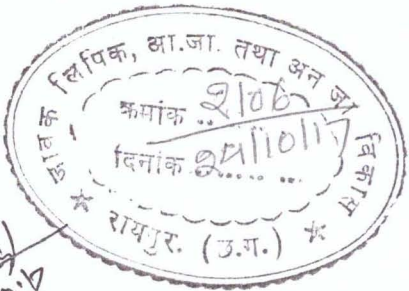 आवक लिपिक, आ.जा. तथा अन. जा. विकास
क्रमांक .. 2106
दिनांक 24/10/17
★ रायपुर. (छ.ग.) ★